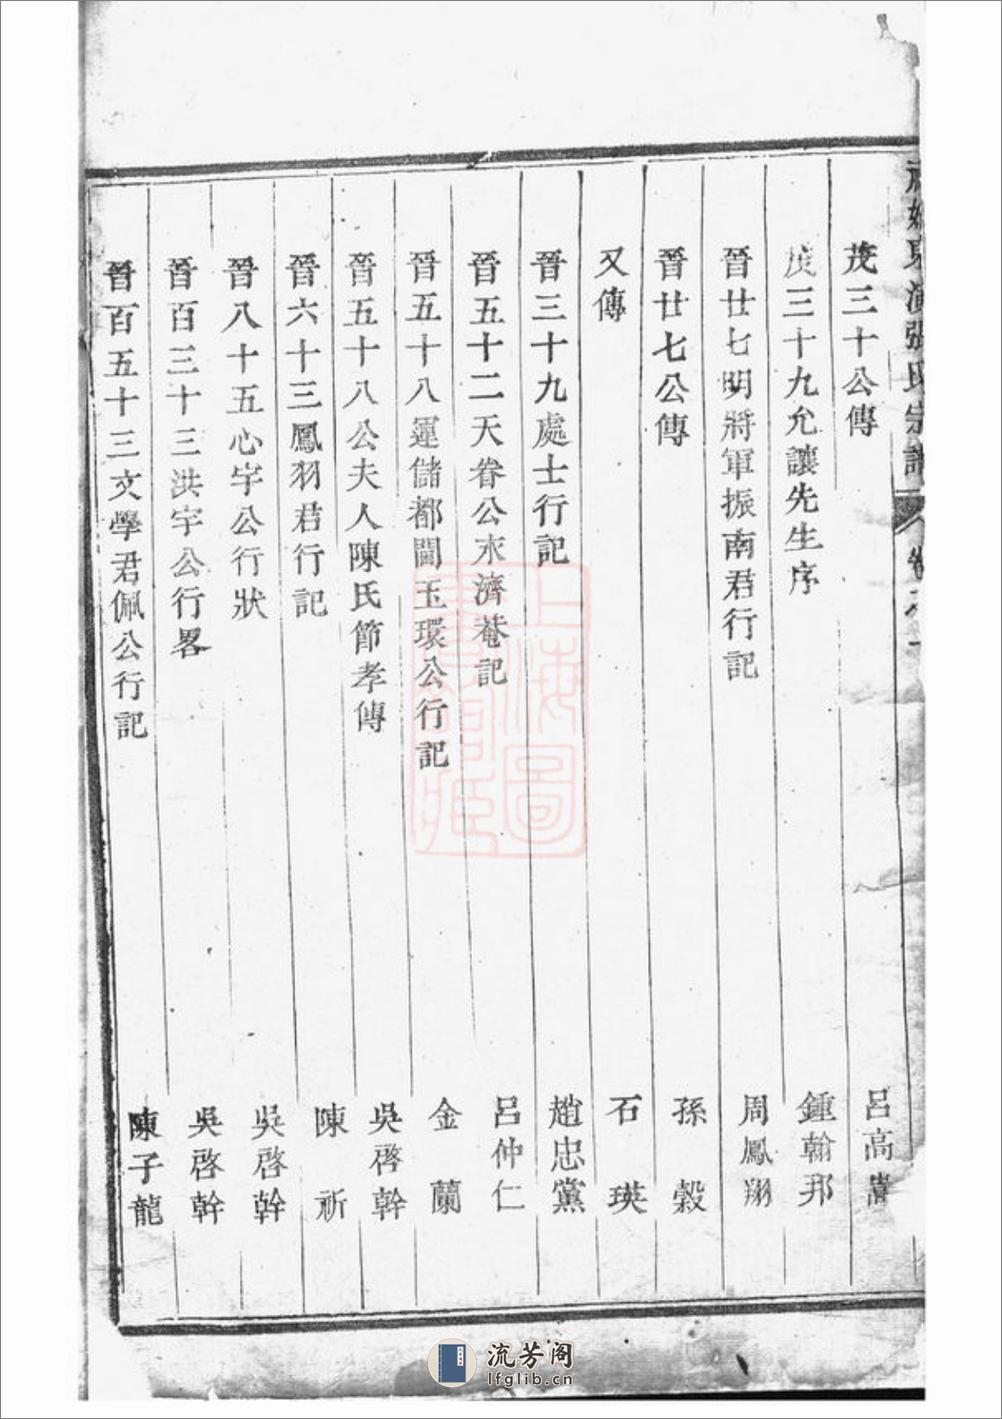 東演張氏宗譜 卷之一
茂三十公傳 呂高
茂三十九允讓先生序 鍾翰邦
晉廿七明將軍振南君行記 周鳳翔
晉廿七公傳 孫榖
又傳 石瑛
晉三十九處士行記 趙忠黨
晉五十二天眷公末濟菴記 呂仲仁
晉五十八運儲都閫玉環公行記 金蘭
晉五十八公夫人陳氏節孝傳 吳啓幹
晉六十三鳳羽君行記 陳祈
晉八十五心宇公行狀 吳啓幹
晉百三十三洪宇公行畧 吳啓幹
晉百五十三文學君佩公行記 陳子龍
上海圖書館藏
流芳阁
lfglib.cn